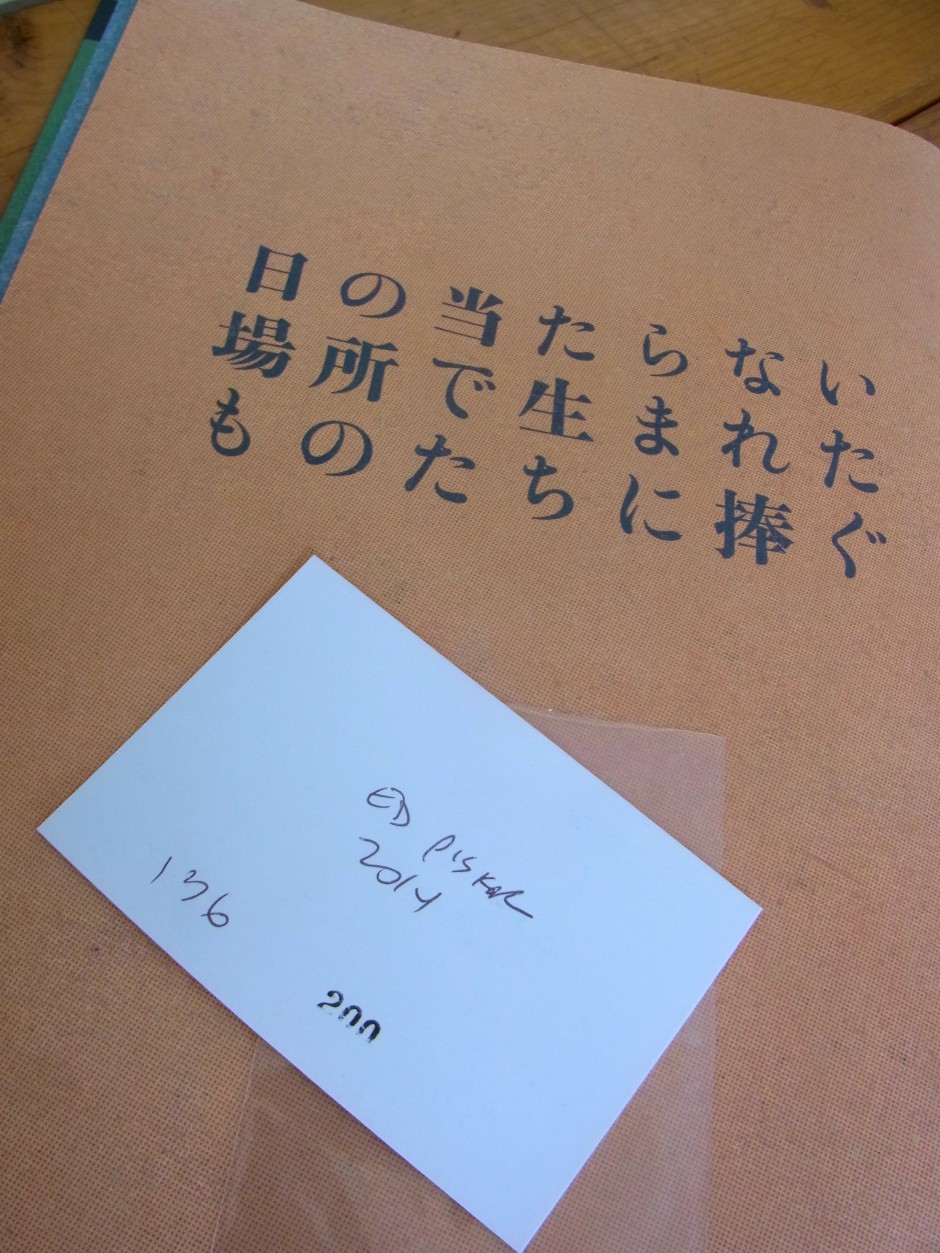 日の当たらない
場所で生まれた
ものたちに捧ぐ
ED PISKOR
2014
136
200